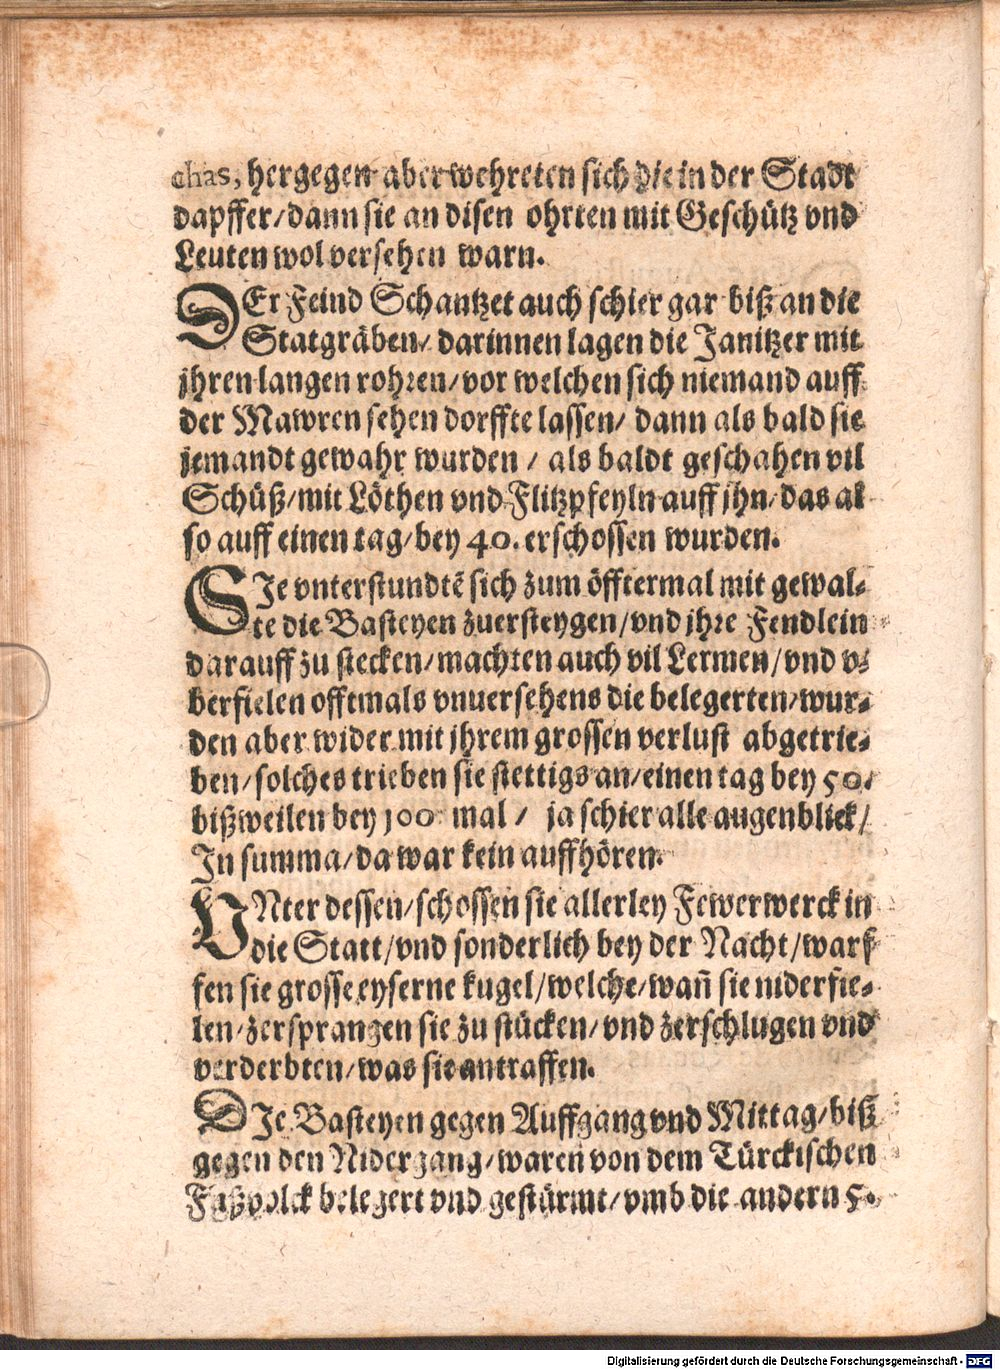 chas, hergegen aber wehreten sich die in der Stadt
dapffer/dann sie an disen ohrten mit Geschütz vnd
Leuten wol versehen warn.
DEr Feind Schantzet auch schier gar biß an die
Statgräben/ darinnen lagen die Janitzer mit
jhren langen rohren/vor welchen sich niemand auff
der Mawren sehen dorffte lassen/ dann als bald sie
jemandt gewahr wurden / als baldt geschahen vil
Schüß/mit Löthen vnd Flitzpfeyln auff jhn/das al
so auff einen tag/bey 40. erschossen wurden.
SIe vnterstundtē sich zum öfftermal mit gewal-
te die Basteyen zuersteygen/vnd jhre Fendlein
darauff zu stecken/machten auch vil Lermen/vnd v-
berfielen offtmals vnuersehens die belegerten/wur-
den aber wider mit jhrem grossen verlust abgetrie-
ben/solches trieben sie stettigs an/einen tag bey 50.
bißweilen bey 100 mal / ja schier alle augenblick/
In summa/da war kein auffhören.
VNter dessen/schossen sie allerley Fewerwerck in
die Statt/vnd sonderlich bey der Nacht/warf
fen sie grosse eyserne kugel/welche/wañ sie niderfie-
len/zersprangen sie zu stücken/vnd zerschlugen vnd
verderbten/was sie antraffen.
DIe Basteyen gegen Auffgang vnd Mittag/biß
gegen den Nidergang/waren von dem Türckischen
Fußvolck belegert vnd gestürmt/vmb die andern 5.
Digitalisierung gefördert durch die Deutsche Forschungsgemeinschaft - DFG